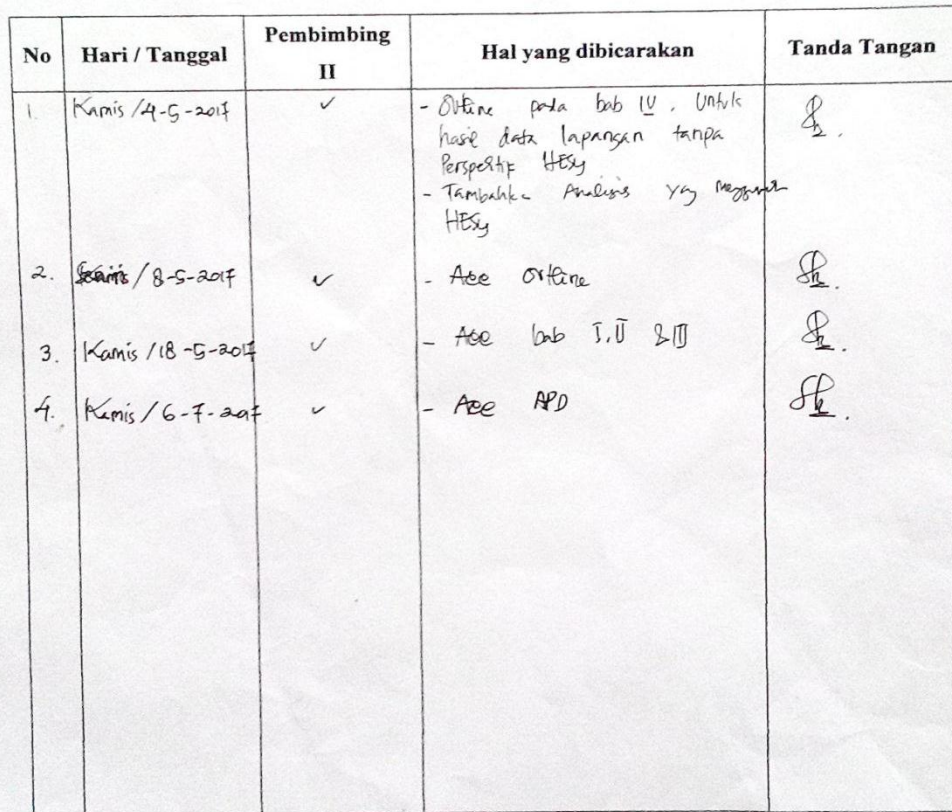 No Hari / Tanggal Pembimbing II Hal yang dibicarakan Tanda Tangan
1. Kamis / 4-5-2017 ✓ - Outline pada bab IV. Untuk
hasil data lapangan tanpa
Perspektif HESy
- Tambahkan Analisis yg
HESy
2. / 8-5-2017 ✓ - Acc outline
3. Kamis / 18-5-2017 ✓ - Acc bab I, II & III
4. Kamis / 6-7-2017 ✓ - Acc APD